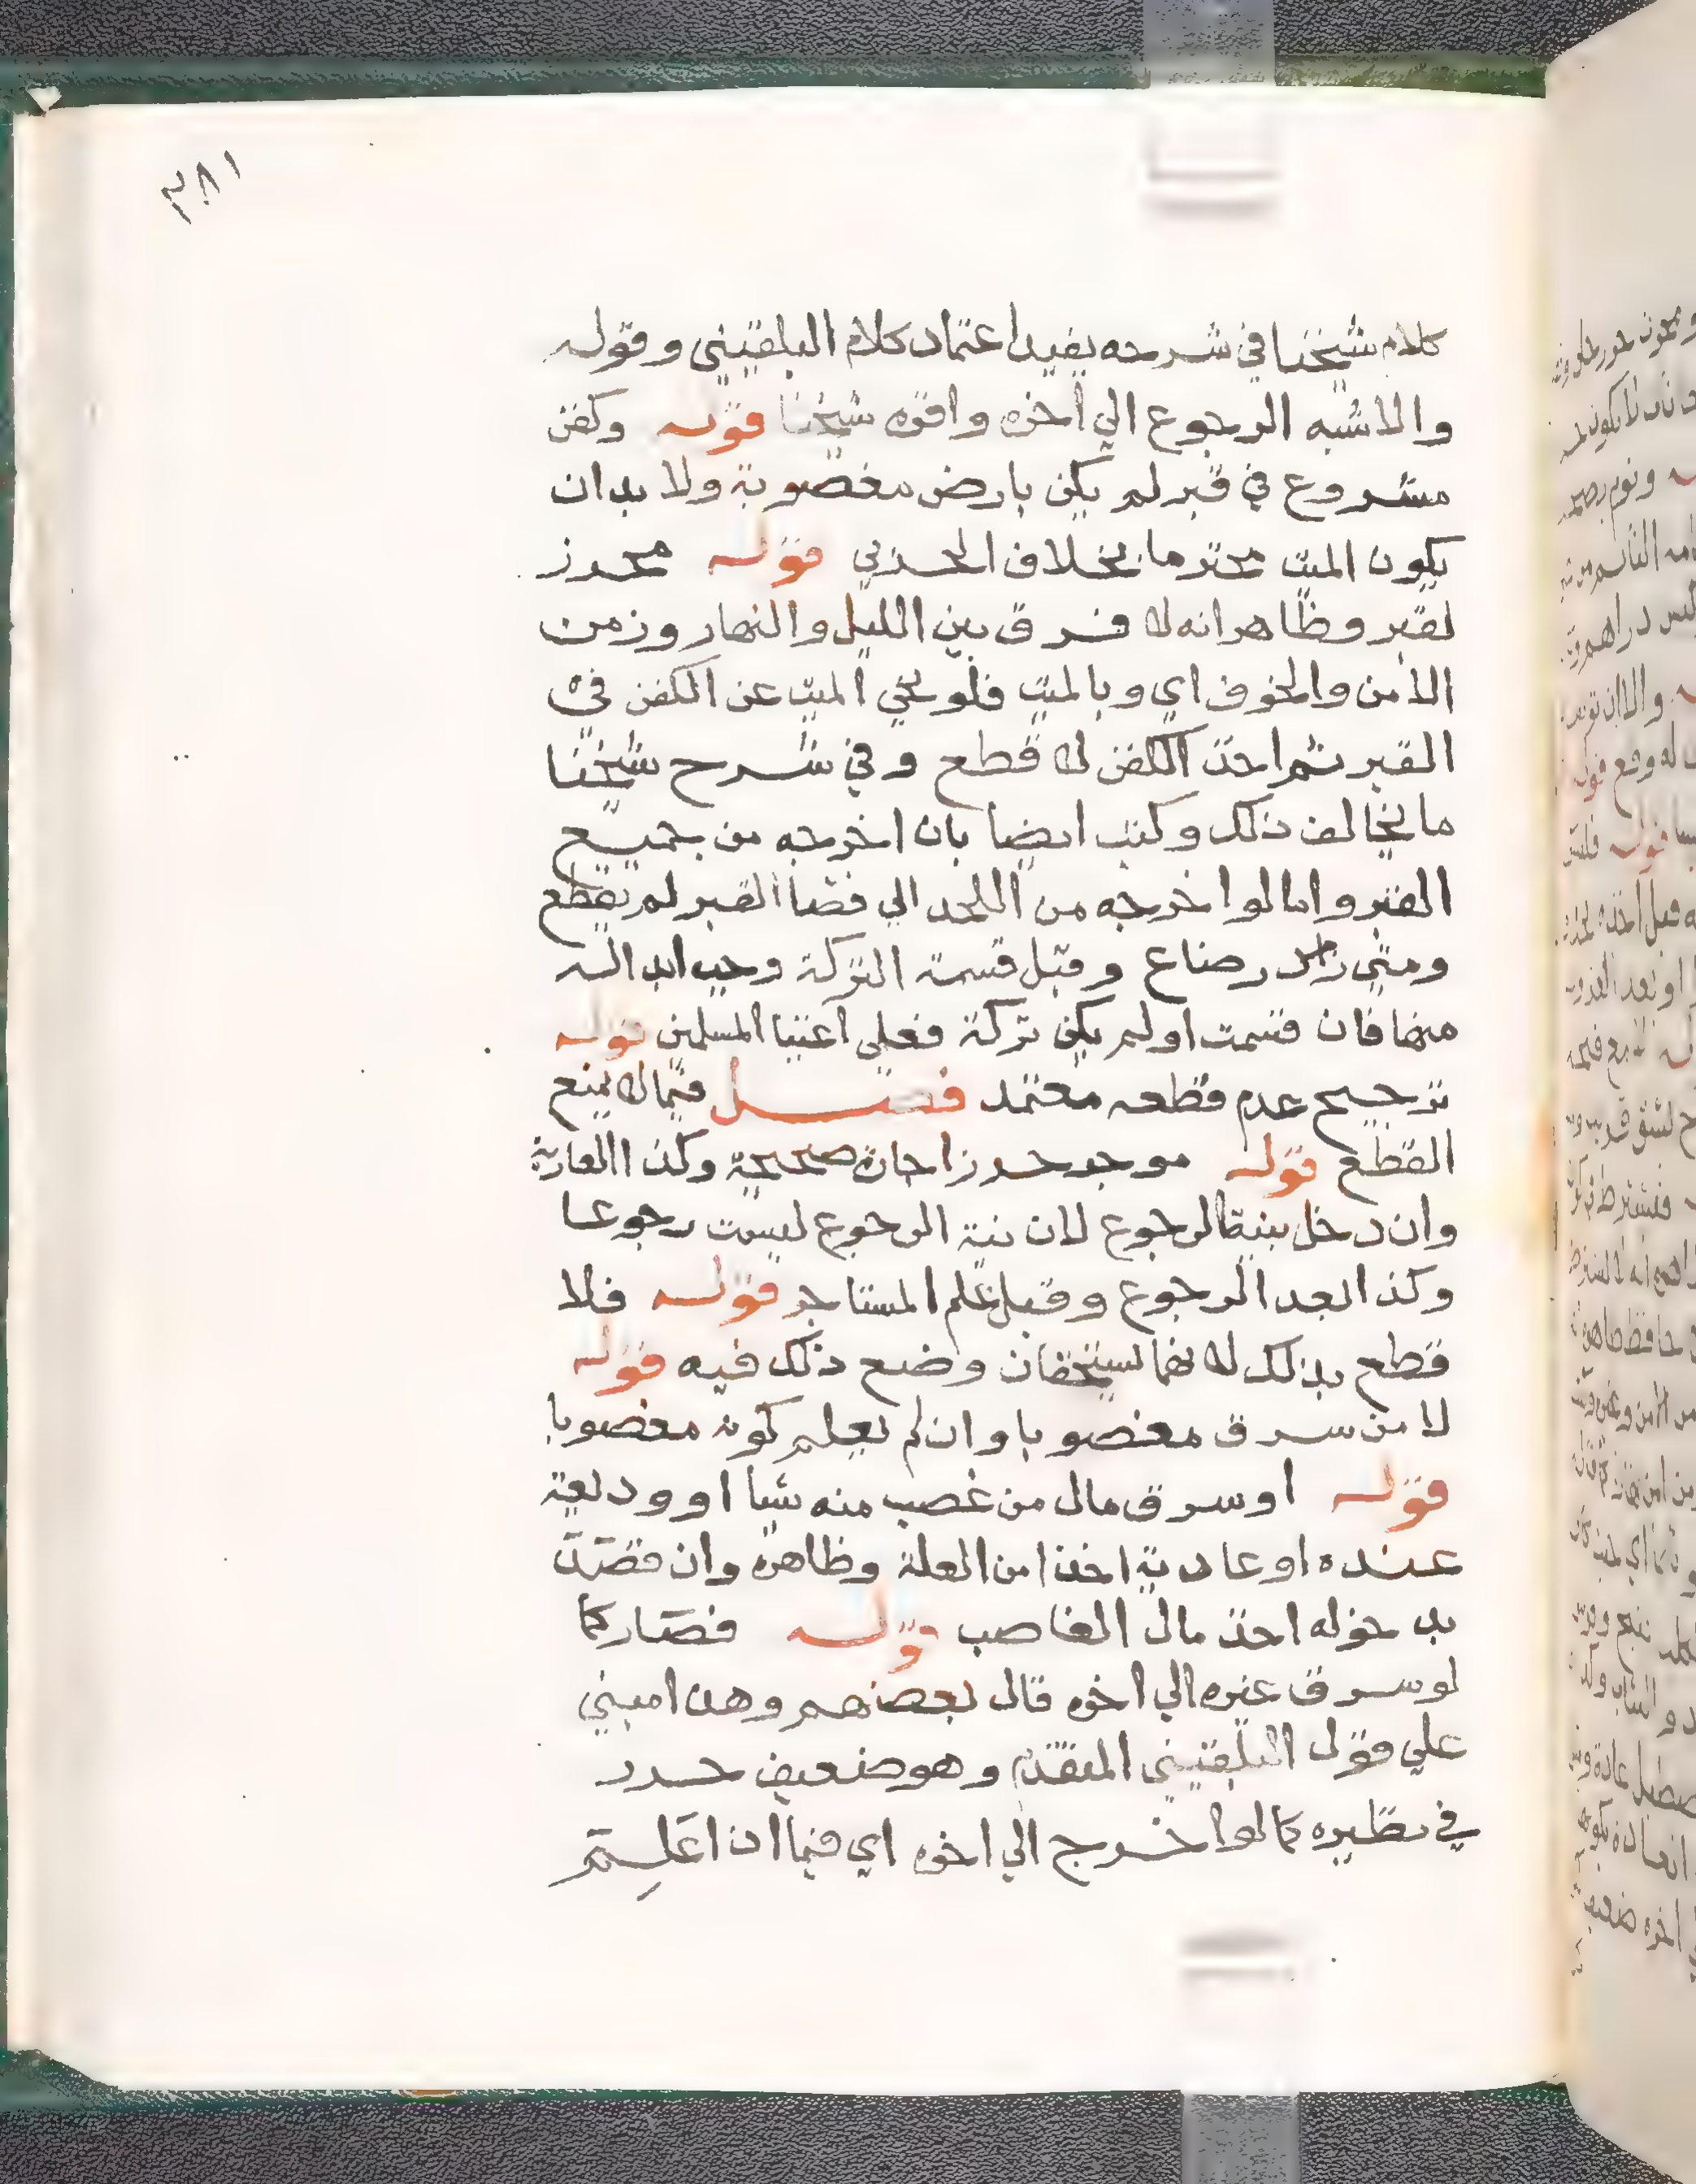 ٣٨١
كلام شيخنا في شرحه يفيد اعتماد كلام البلقيني وقوله
والاشبه الرجوع الي اخره وافقه شيخنا قوله وكفن
مشروع في قبر لم يكن بارض مغصوبة ولا بد ان
يكون الميت محترما بخلاف الحربي قوله محرز
لقبر وظاهر انه لا فرق بين الليل والنهار وزمن
الأمن والخوف اي وبالميت فلو نحي الميت عن الكفن في
القبر ثم اخذ الكفن لا قطع وفي شرح شيخنا
ما يخالف ذلك وكتب ايضا بان اخرجه من جميع
القبر واما لو اخرجه من اللحد الي فضا القبر لم يقطع
ومتي وضاع وقبل قسمة التركة وجب ابداله
منها فان قسمت او لم يكن تركة فعلي اغنيا المسلمين قوله
ترجيح عدم قطعه معتمد فصل فيما لا يمنع
القطع قوله موجر حرز اجارة صحيحة وكذا العارية
وان دخل بنية الرجوع لان نية الرجوع ليست رجوعا
وكذا بعد الرجوع وقبل علم المستاجر قوله فلا
قطع بذلك لا نهما يستحقان وضع ذلك فيه قوله
لا من سرق مغصوبا وان لم يعلم كونه مغصوبا
قوله او سرق مال من غصب منه شيا او وديعة
عنده او عارية اخذا من العلة وظاهره وان قصد
بد خوله اخذ مال الغاصب قوله فصار كما
لو سرق غيره الي اخره قال بعضهم وهذا مبني
علي قول البلقيني المتقدم وهو ضعيف
في نظيره كما لو اخرج الي اخره اي فيما اذا علم